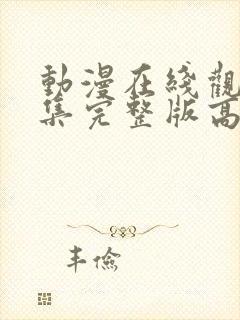 動漫在綫觀
集完整版高
丰儉